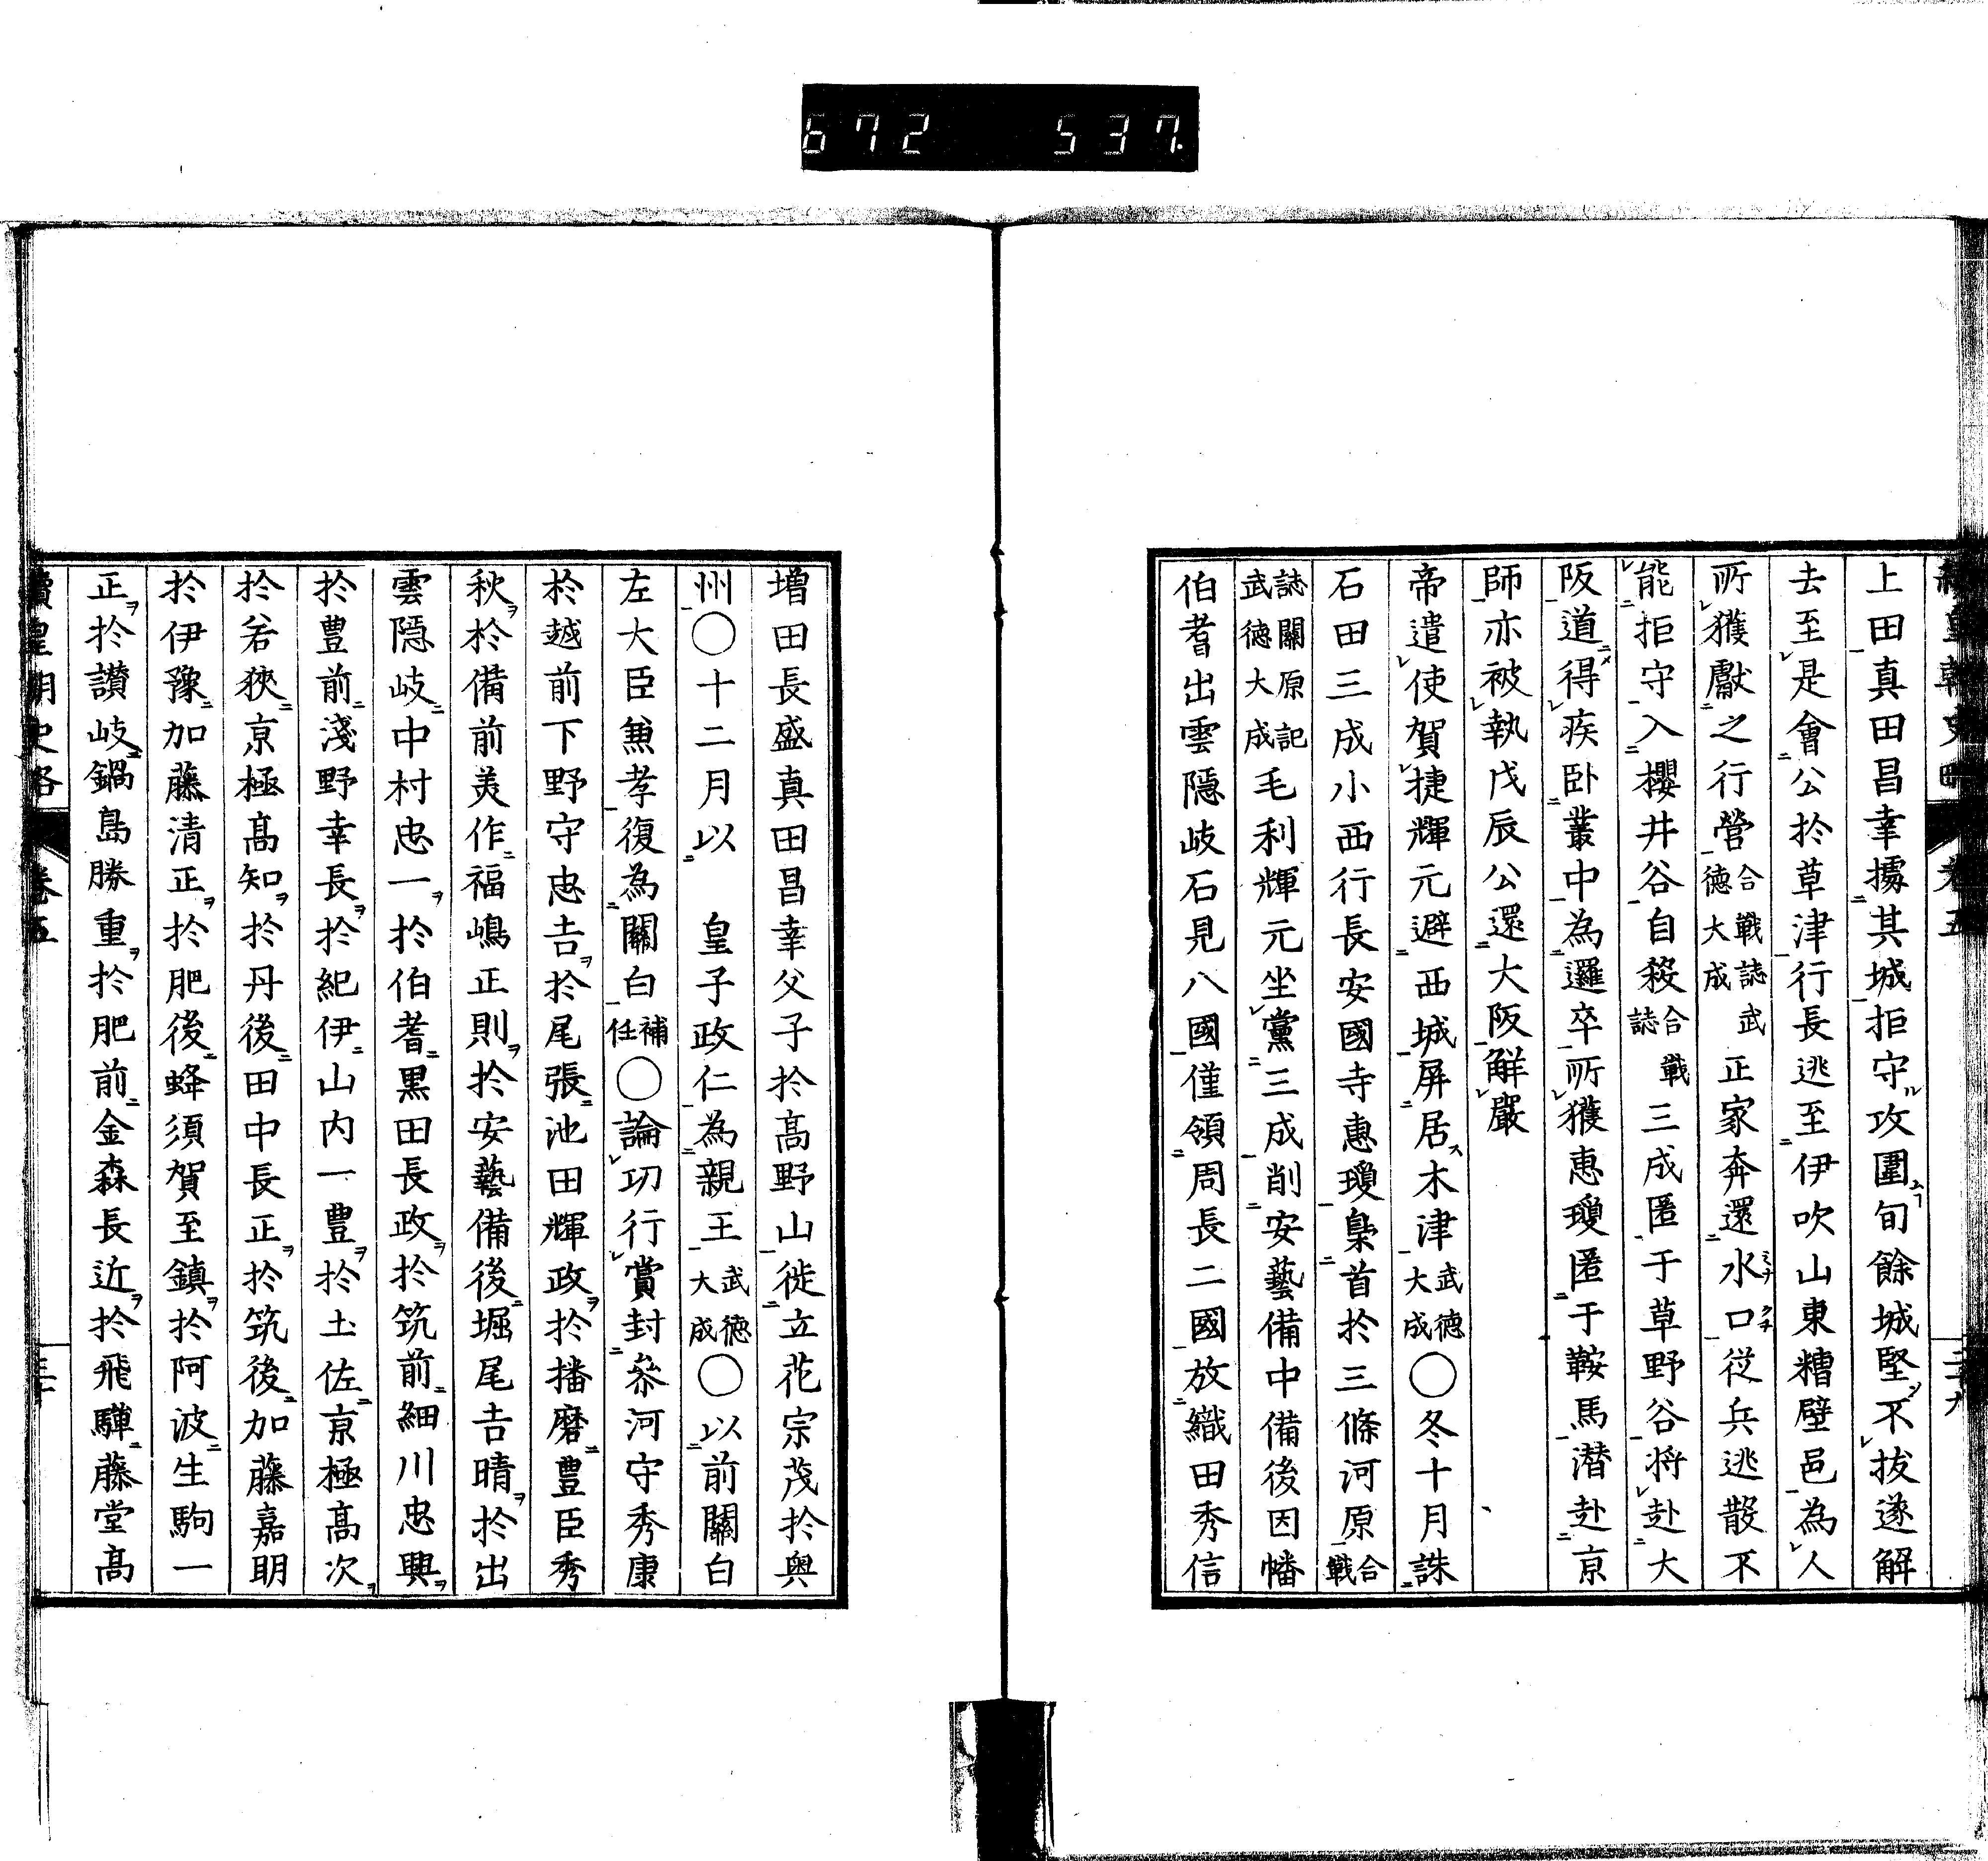 672 537.
上田真田昌幸據其城拒守攻圍旬餘城堅不拔遂解
去至是會公於草津行長逃至伊吹山東糟壁邑為人
所獲獻之行營合戰誌武德大成正家奔還水口從兵逃散不
能拒守入櫻井谷自殺合戰誌三成匿于草野谷将赴大
阪道得疾卧叢中為邏卒所獲惠瓊匿于鞍馬潜赴京
師亦被執戊辰公還大阪解嚴
帝遣使賀捷輝元避西城屏居木津武德大成〇冬十月誅
石田三成小西行長安國寺惠瓊梟首於三條河原合戰
誌關原記武德大成毛利輝元坐黨三成削安藝備中備後因幡
伯耆出雲隱岐石見八國僅領周長二國放織田秀信
增田長盛真田昌幸父子於高野山徙立花宗茂於奥
州〇十二月以 皇子政仁為親王武德大成〇以前關白
左大臣兼孝復為關白補任〇論功行賞封參河守秀康
於越前下野守忠吉於尾張池田輝政於播磨豊臣秀
秋於備前美作福嶋正則於安藝備後堀尾吉晴於出
雲隱岐中村忠一於伯耆黒田長政於筑前細川忠興
於豊前淺野幸長於紀伊山内一豊於土佐京極高次
於若狹京極高知於丹後田中長正於筑後加藤嘉明
於伊豫加藤清正於肥後蜂須賀至鎮於阿波生駒一
正於讃岐鍋島勝重於肥前金森長近於飛驒藤堂高
續皇朝史略 卷五